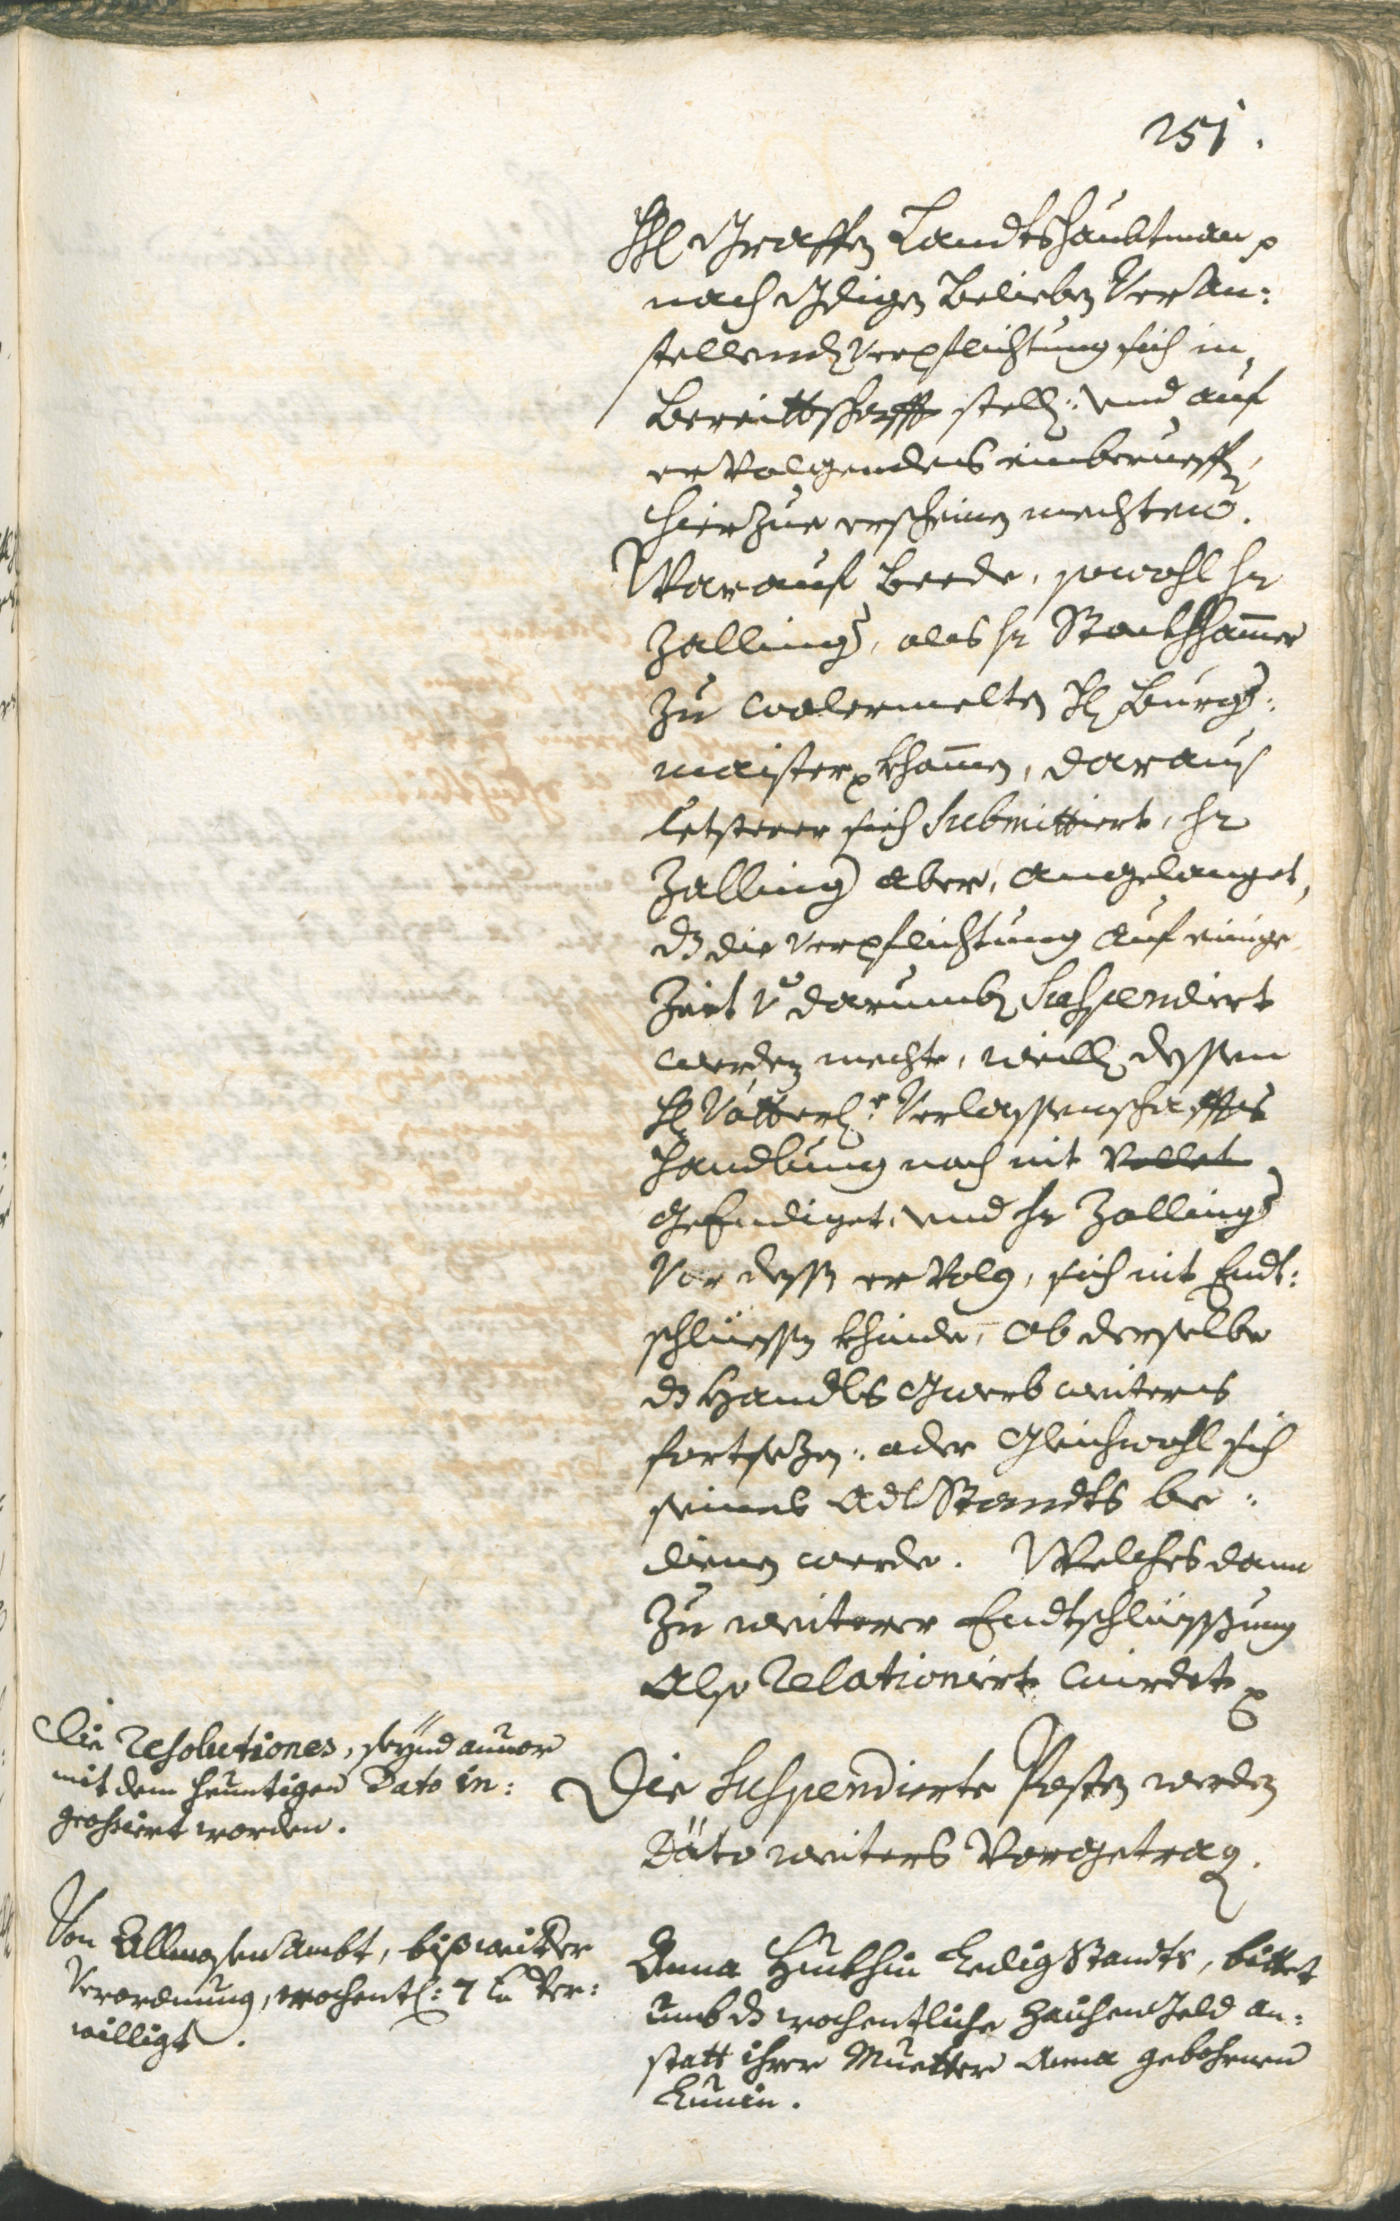 251.
H Graffen Landtshaubtman p
nach Gdigen Belieben Veran:
stellende Verpflichtung sich in
Bereittschafft stell: und auf
ervolgendes einberueffen,
hierzue erscheinen mechten.
Warauf beede, sowohl Hr
Zallinger, als Hr Stockhhamer
zu wolermelten H Burger:
maister p khamen, daraus
letsterer sich submittiert, Hr
Zallinger aber, angelanget,
dz die Verpflichtung auf einige
Zeit und darumben suspendiert
werden mechte, weillen dessen
H Vätterliche Verlassenschaffts
handlung noch nit vollet
geEndiget, und Hr Zallinger
vor dessen ervolg, sich nit Endt:
schliessen khinde, ob derselbe
dz Handls Gwerb weiters
fortsezen: oder gleichwohl sich
seines Adl Standts be:
dienen werde. Welches dann
zu weiterer Endtschliessung
also relationiert wirdet p
Die Resolutiones, seynd anvor
mit dem heuntigen Dato in:
grossiert worden.
Die suspendierte Posten werden
Dato weiters vorgetragen.
Von Allmosen Ambt, biß weitter
Verordnung, wochentl: 7 xr ver:
willigt.
Anna Huebhin Ledig Standts, bittet
umb dz wochentliche Zaichen Geld an:
statt ihrer Muetter Anna gebohrnen